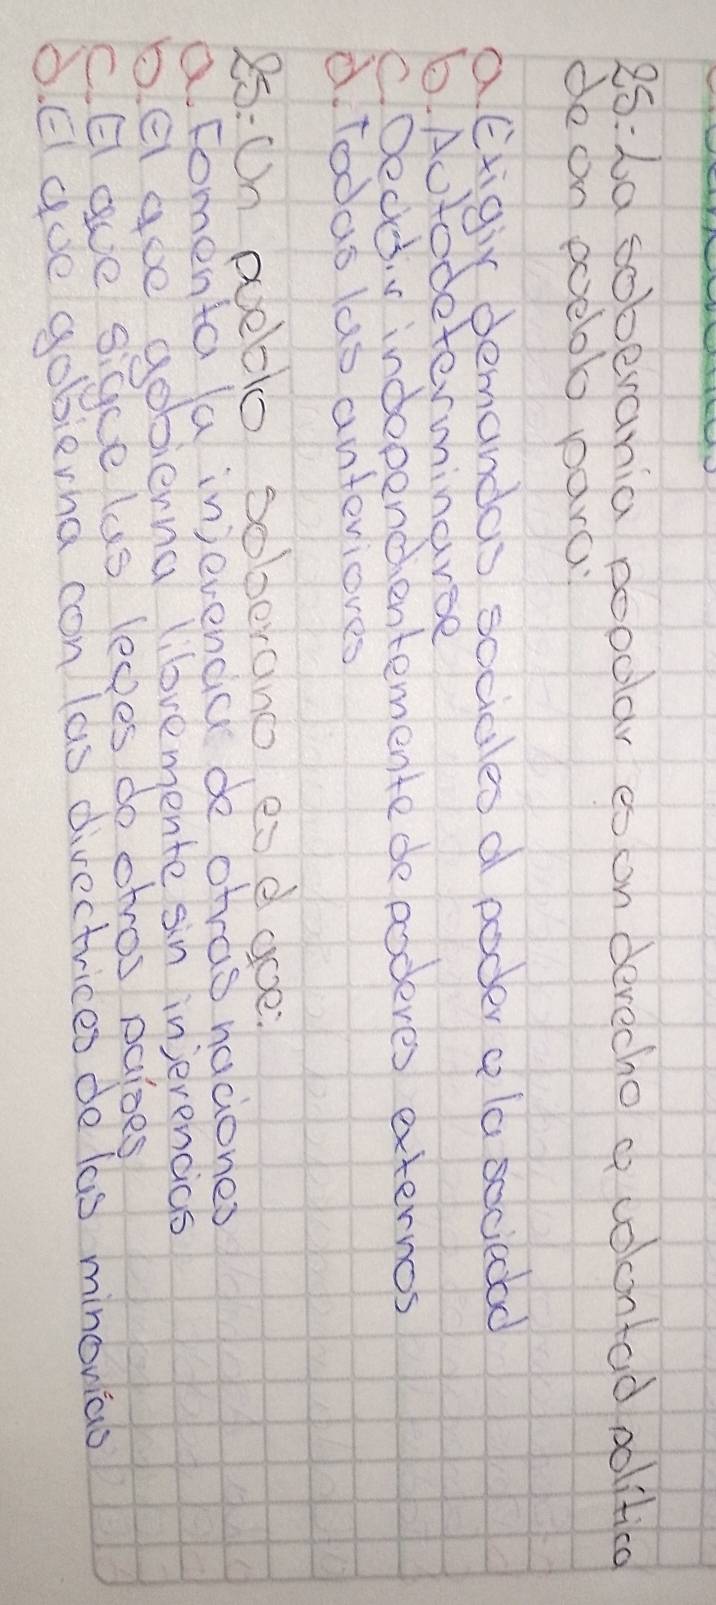 25:La soberanía popular es un derecho y voluntad política
de un pueblo para:
a. Exigir demandas sociales al poder y la sociedad
b. Autodeterminarse
c. Decidir independientemente de poderes externos
d. Todas las anteriores
25:Un pueblo soberano es el que:
a. Fomenta la injerencia de otras naciones
b. El que gobierna libremente sin injerencias
c. El que sigue las leyes de otros países
d. El que gobierna con las directrices de las minorías